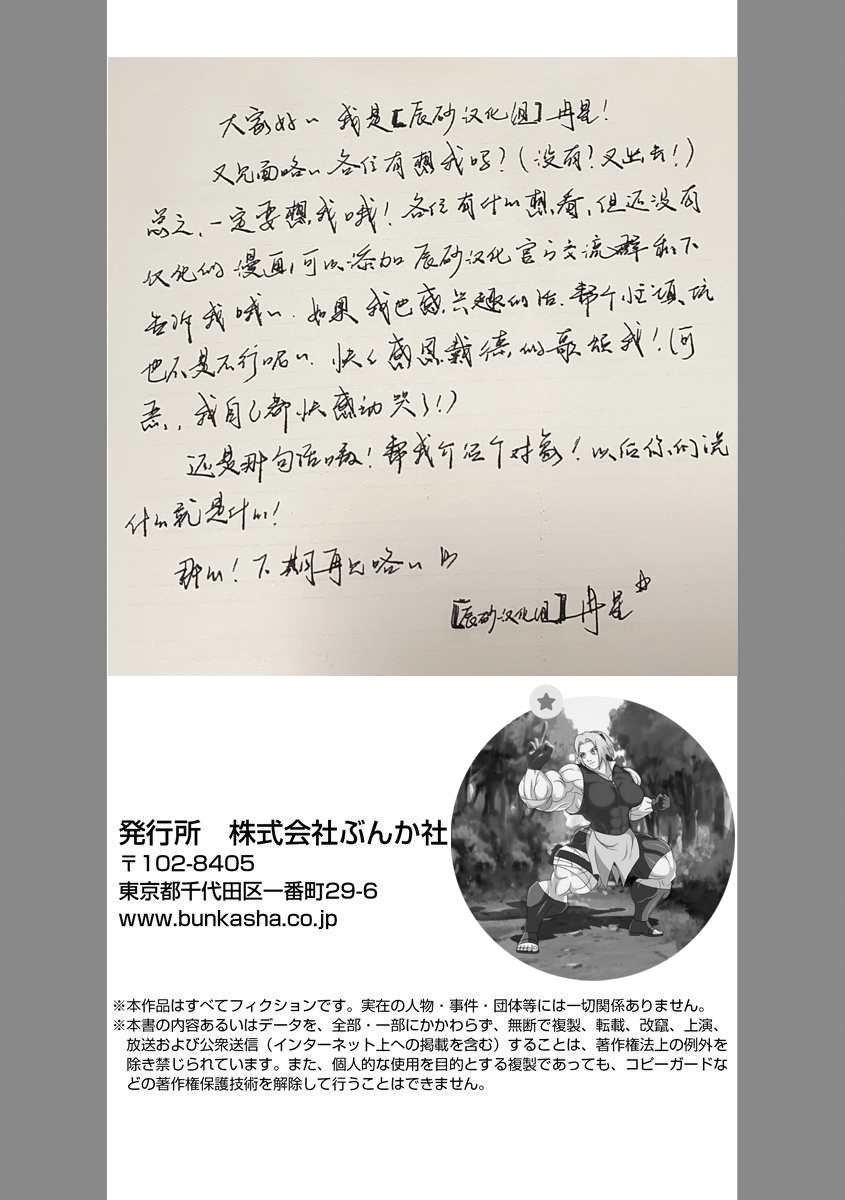 大家好ㄟ 我是【辰砂汉化组】冉星！
又见面咯ㄟ各位有想我吗？（没有？叉出去！）
总之，一定要想我哦！各位有什么想看，但还没有
汉化的漫画，可以添加辰砂汉化官方交流群和下
告诉我哦ㄟ．如果我也感兴趣的话．帮个忙填坑
也不是不行呢ㄟ．快人感恩戴德的歌颂我！（可
恶，我自己都快感动哭了！）
还是那句话嗷！帮我介绍个对象！以后你们说
什么就是什么！
那么！下期再见咯ㄟ
【辰砂汉化组】冉星
発行所　株式会社ぶんか社
〒102-8405
東京都千代田区一番町29-6
www.bunkasha.co.jp
※本作品はすべてフィクションです。実在の人物・事件・団体等には一切関係ありません。
※本書の内容あるいはデータを、全部・一部にかかわらず、無断で複製、転載、改竄、上演、
放送および公衆送信（インターネット上への掲載を含む）することは、著作権法上の例外を
除き禁じられています。また、個人的な使用を目的とする複製であっても、コピーガードな
どの著作権保護技術を解除して行うことはできません。